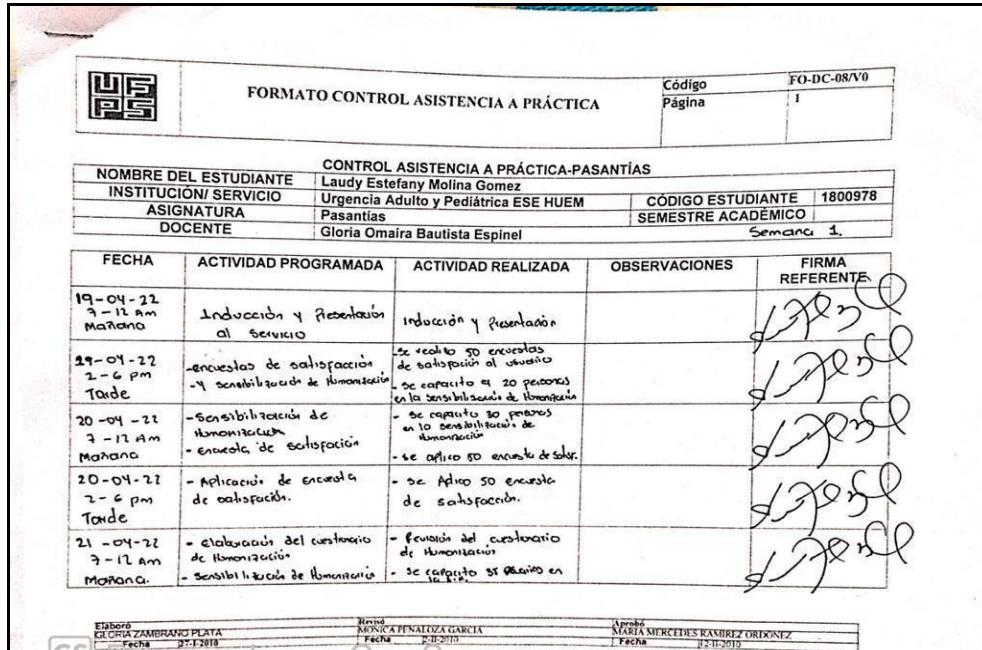 UFPS
FORMATO CONTROL ASISTENCIA A PRÁCTICA
Código
FO-DC-08/V0
Página
1
CONTROL ASISTENCIA A PRÁCTICA-PASANTÍAS
NOMBRE DEL ESTUDIANTE Laudy Estefany Molina Gomez
INSTITUCIÓN/ SERVICIO Urgencia Adulto y Pediátrica ESE HUEM CÓDIGO ESTUDIANTE 1800978
ASIGNATURA Pasantías SEMESTRE ACADÉMICO
DOCENTE Gloria Omaira Bautista Espinel Semana 1.
FECHA ACTIVIDAD PROGRAMADA ACTIVIDAD REALIZADA OBSERVACIONES FIRMA REFERENTE
19-04-22
7-12 Am
Mañana
Inducción y Presentación
al Servicio
Inducción y Presentación
19-04-22
2-6 pm
Tarde
-encuestas de satisfacción
-y sensibilización de Humanización
-se realizo 50 encuestas
de satisfación al usuario
- se capacito a 20 personas
en la sensibilización de Humanización
20-04-22
7-12 Am
Mañana
-Sensibilización de
Humanización
- encuesta de satisfación
- se capacito 30 personas
en la sensibilización de
Humanización
- se aplico 50 encuesta de
20-04-22
2-6 pm
Tarde
- Aplicación de encuesta
de satisfación.
- se Aplico 50 encuesta
de satisfacción.
21-04-22
7-12 Am
Mañana.
- Elaboración del cuestionario
de Humanización
- Sensibilización de Humanización
- Revisión del cuestionario
de Humanización
- se capacito en
Elaboró
GLORIA ZAMBRANO PLATA
Fecha 27-I-2010
Revisó
MONICA PEÑALOZA GARCIA
Fecha 2-II-2010
Aprobó
MARIA MERCEDES RAMIREZ ORDOÑEZ
Fecha 12-II-2010
CS